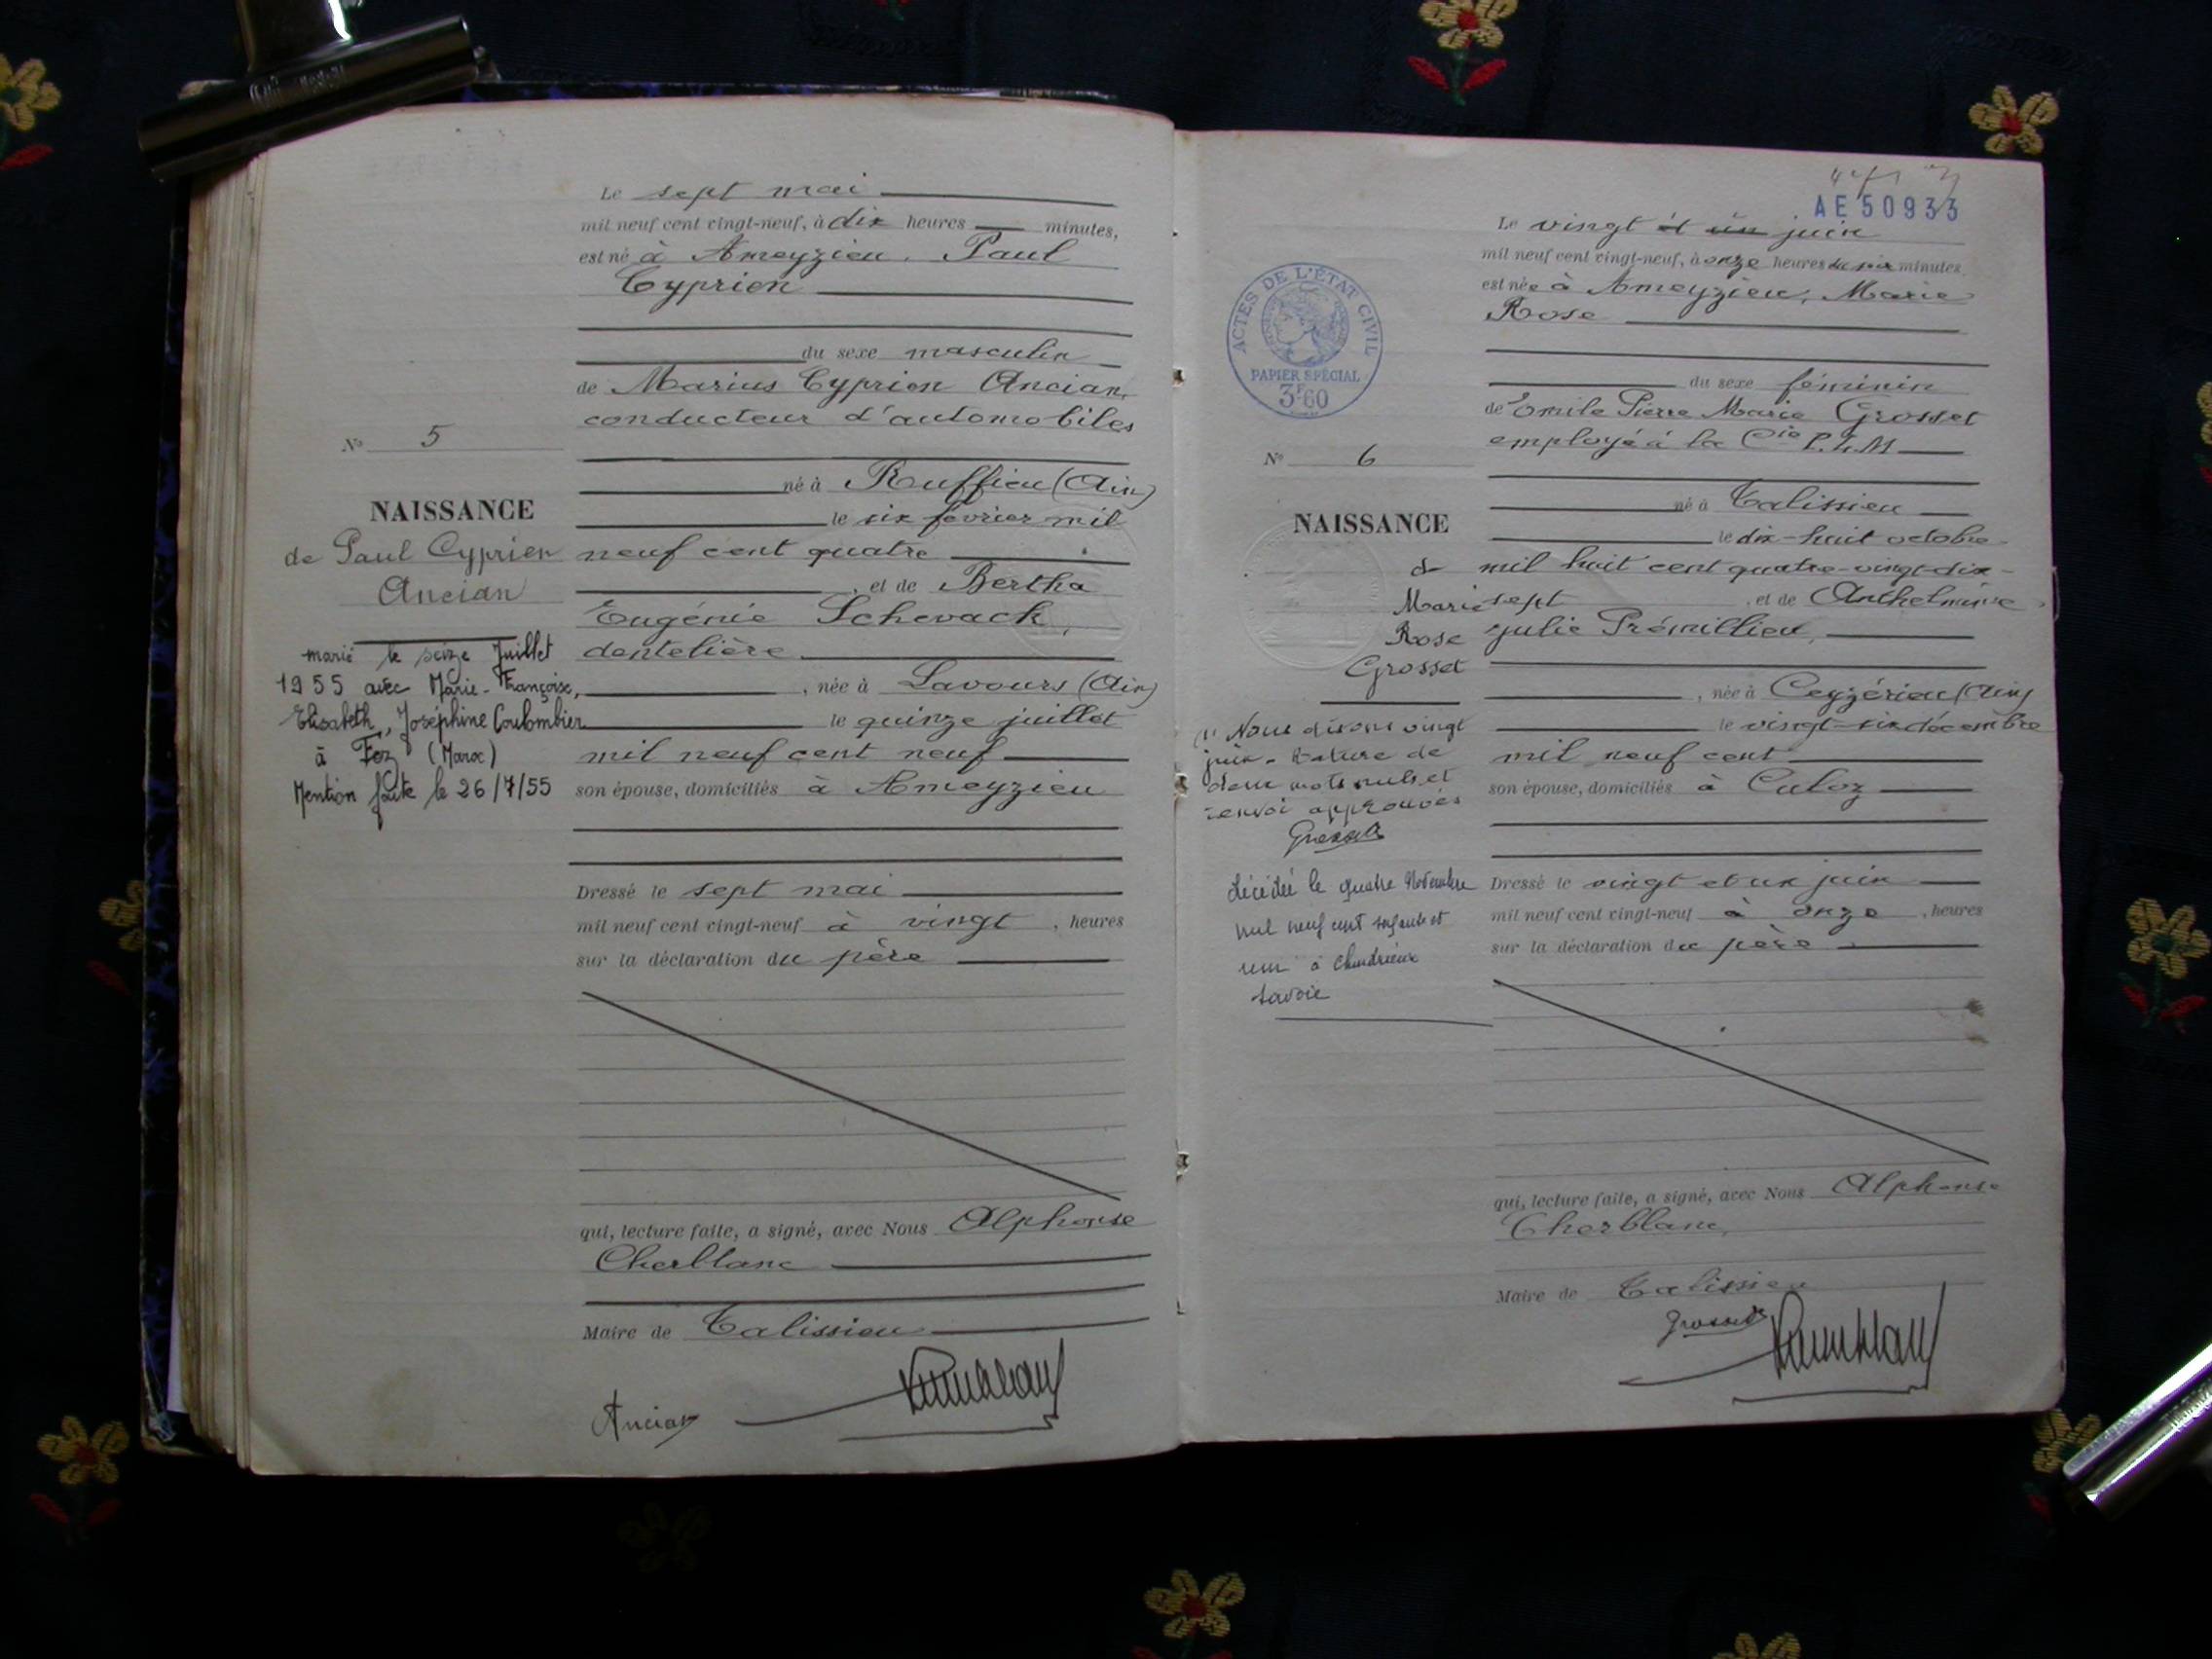 Le sept mai
mil neuf cent vingt-neuf, à dix heures minutes,
est né à Ameyzieu, Paul
Cyprien
du sexe masculin
de Marius Cyprien Ancian,
conducteur d'automobiles
né à Ruffieu (Ain)
le six février mil
neuf cent quatre
, et de Bertha
Eugénie Schevack,
dentelière
, née à Lavours (Ain)
le quinze juillet
mil neuf cent neuf
son épouse, domiciliés à Ameyzieu
Dressé le sept mai
mil neuf cent vingt-neuf à vingt , heures
sur la déclaration du père
qui, lecture faite, a signé, avec Nous Alphonse
Cherblanc
Maire de Talissieu
Ancian
No 5
NAISSANCE
de Paul Cyprien
Ancian
marié le seize Juillet
1955 avec Marie-Françoise,
Elisabeth, Joséphine Coulombier
à Fez (Maroc)
Mention faite le 26/7/55
AE 50933
Le vingt et un juin
mil neuf cent vingt-neuf, à onze heures du soir minutes,
est née à Ameyzieu, Marie
Rose
du sexe féminin
de Emile Pierre Marie Grosset
employé à la Cie P.L.M
né à Talissieu
le dix-huit octobre
mil huit cent quatre-vingt-dix-
sept , et de Anthelmine
Julie Prémillieu,
, née à Ceyzérieu (Ain)
le vingt-six décembre
mil neuf cent
son épouse, domiciliés à Culoz
Dressé le vingt et un juin
mil neuf cent vingt-neuf à onze , heures
sur la déclaration du père
qui, lecture faite, a signé, avec Nous Alphonse
Cherblanc,
Maire de Talissieu
Grosset
ACTES DE L'ÉTAT CIVIL
PAPIER SPÉCIAL
3F60
No 6
NAISSANCE
de
Marie
Rose
Grosset
(1) Nous disons vingt
juin. Rature de
deux mots nuls et
renvoi approuvés
Grosset
décédée le quatre Novembre
mil neuf cent soixante et
un à Chindrieux
Savoie